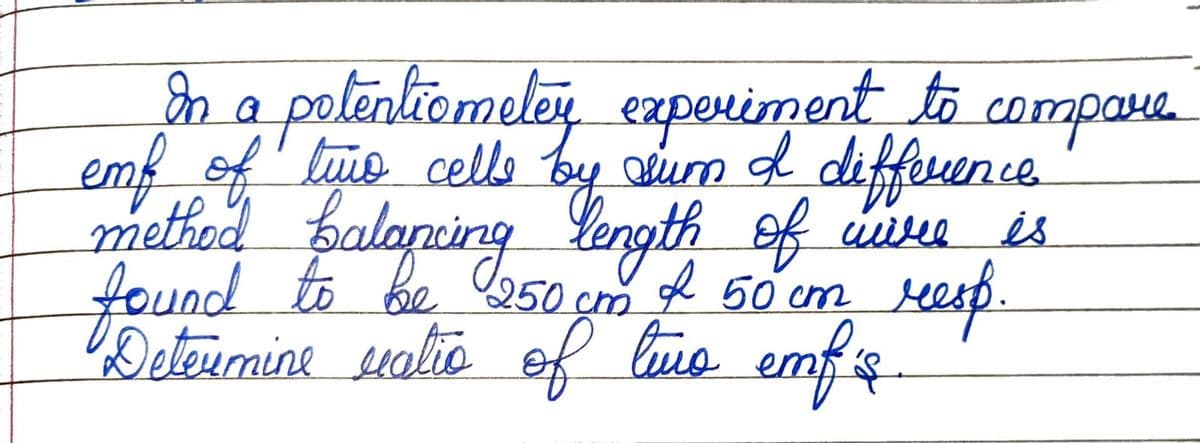 In a potentiometer experiment to compare
emf of two cells by sum & difference
method balancing length of wire is
found to be 250 cm & 50 cm resp.
Determine ratio of two emf's.